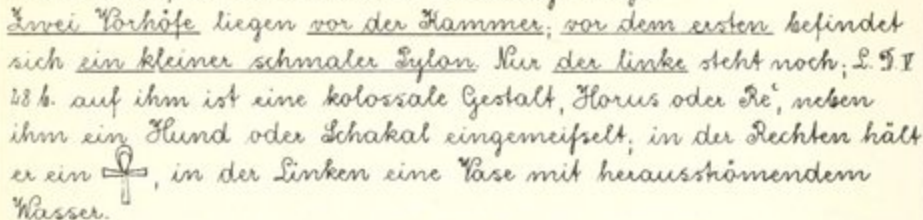 Zwei Vorhöfe liegen vor der Kammer; vor dem ersten befindet
sich ein kleiner schmaler Pylon. Nur der linke steht noch; L. D. V
28 b. auf ihm ist eine kolossale Gestalt, Horus oder Reʿ, neben
ihm ein Hund oder Schakal eingemeißelt; in der Rechten hält
er ein ☥, in der Linken eine Vase mit herausströmendem
Wasser.